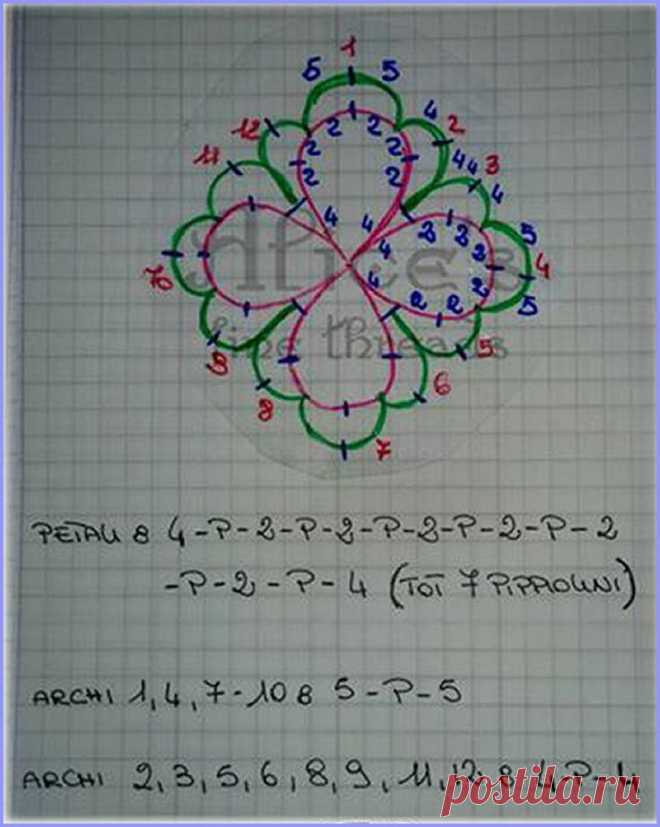 1
5 5
4
12 2
2 2
2 2 4 4 3
11 2 2 4
4 4 4 2 2 5
Alice's
2 4
10 4 2 2 2 5
9 fine threads 5
8 6
7
PETALI 8 4-P-2-P-2-P-2-P-2-P-2
-P-2-P-4 (TOT 7 PIPPIOLINI)
ARCHI 1,4,7-10 8 5-P-5
ARCHI 2,3,5,6,8,9,11,12 8 4-P-4
postila.ru